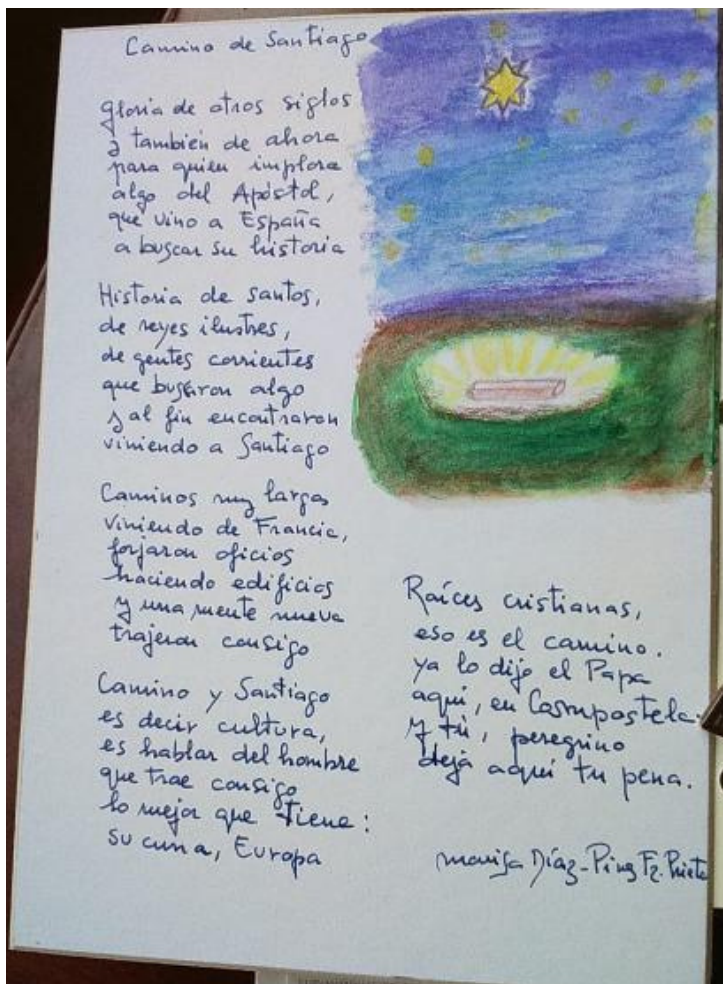 Camino de Santiago
Gloria de otros siglos
y también de ahora
para quien implora
algo del Apóstol,
que vino a España
a buscar su historia
Historia de santos,
de reyes ilustres,
de gentes corrientes
que buscaron algo
y al fin encontraron
viniendo a Santiago
Caminos muy largos
viniendo de Francia,
forjaron oficios
haciendo edificios
y una mente nueva
trajeron consigo
Camino y Santiago
es decir cultura,
es hablar del hombre
que trae consigo
lo mejor que tiene:
su cuna, Europa
Raíces cristianas,
eso es el camino.
ya lo dijo el Papa
aquí, en Compostela.
y tú, peregrino
deja aquí tu pena.
Marisa Díaz-Pinés Fz. Prieto